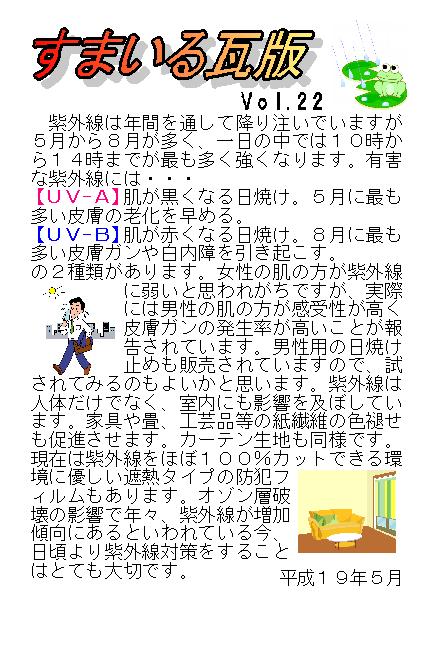 すまいる瓦版
Vol.22
紫外線は年間を通して降り注いでいますが
５月から８月が多く、一日の中では１０時か
ら１４時までが最も多く強くなります。有害
な紫外線には・・・
【ＵＶ-Ａ】肌が黒くなる日焼け。５月に最も
多い皮膚の老化を早める。
【ＵＶ-Ｂ】肌が赤くなる日焼け。８月に最も
多い皮膚ガンや白内障を引き起こす。
の２種類があります。女性の肌の方が紫外線
に弱いと思われがちですが、実際
には男性の肌の方が感受性が高く
皮膚ガンの発生率が高いことが報
告されています。男性用の日焼け
止めも販売されていますので、試
されてみるのもよいかと思います。紫外線は
人体だけでなく、室内にも影響を及ぼしてい
ます。家具や畳、工芸品等の紙繊維の色褪せ
も促進させます。カーテン生地も同様です。
現在は紫外線をほぼ１００％カットできる環
境に優しい遮熱タイプの防犯フ
ィルムもあります。オゾン層破
壊の影響で年々、紫外線が増加
傾向にあるといわれている今、
日頃より紫外線対策をすること
はとても大切です。
平成１９年５月